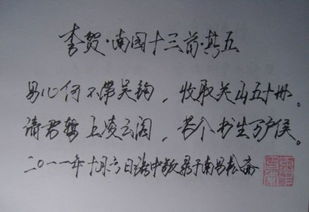 李贺·南园十三首·其五
男儿何不带吴钩，收取关山五十州。
请君暂上凌云阁，若个书生万户侯。
二〇一一年十月六日 于南昌松斋